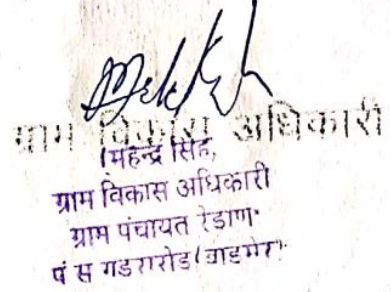 ग्राम विकास अधिकारी
(महेन्द्र सिंह)
ग्राम विकास अधिकारी
ग्राम पंचायत रेडाणा
पं स गडरारोड (बाडमेर)